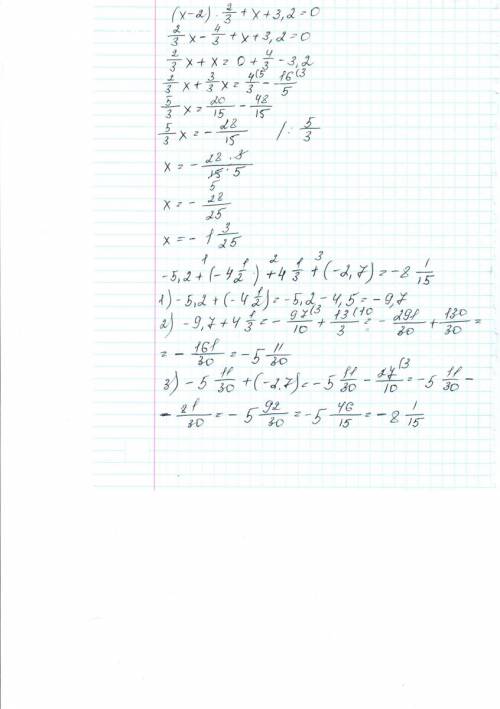 (x-2) · 2/3 + x + 3,2 = 0
2/3 x - 4/3 + x + 3,2 = 0
2/3 x + x = 0 + 4/3 - 3,2
2/3 x + 3/3 x = 4(5/3 - 16(3/5
5/3 x = 20/15 - 48/15
5/3 x = - 28/15 /: 5/3
x = - 28 · 3/15 · 5
5
x = - 28/25
x = - 1 3/25
1 2 3
-5,2 + (-4 1/2) + 4 1/3 + (-2,7) = -8 1/15
1) -5,2 + (-4 1/2) = -5,2 - 4,5 = -9,7
2) -9,7 + 4 1/3 = - 97(3/10 + 13(10/3 = - 291/30 + 130/30 =
= - 161/30 = -5 11/30
3) -5 11/30 + (-2,7) = -5 11/30 - 27(3/10 = -5 11/30 -
- 81/30 = -5 92/30 = -5 46/15 = -8 1/15